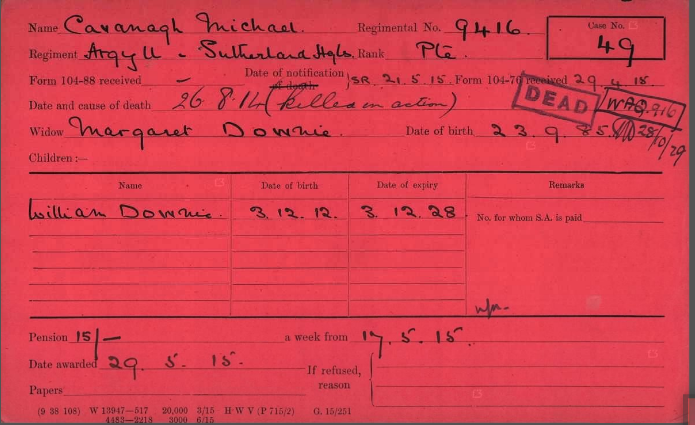 Name Cavanagh Michael. Regimental No. 9416. Case No. 49
Regiment Argyll & Sutherland Hghs. Rank Pte
Form 104-88 received — Date of notification of death SR 21.5.15. Form 104-76 received 29 4 15.
Date and cause of death 26 8.14 (killed in action) DEAD
Widow Margaret Downie. Date of birth 23.9.85. 28/10/29
Children :—
Name Date of birth Date of expiry Remarks
William Downie. 3.12.12. 3.12.28.
No. for whom S.A. is paid
Pension 15/— a week from 17.5.15.
Date awarded 29. 5. 15.
If refused, reason
Papers
(9 38 108) W 13947—517 20,000 3/15 H W V (P 715/2) G. 15/251
4483—2218 3000 6/15